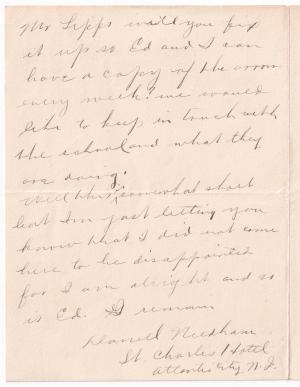 Mr Lipps will you fix
it up so Ed and I can
have a copy of the arrow
every week? we would
like to keep in touch with
the school and what they
are doing.
Well this somewhat short
but Im just letting you
know that I did not come
here to be disappointed
for I am alright and so
is Ed. I remain
Daniel Needham
St. Charles Hotel
Atlantic City N. J.